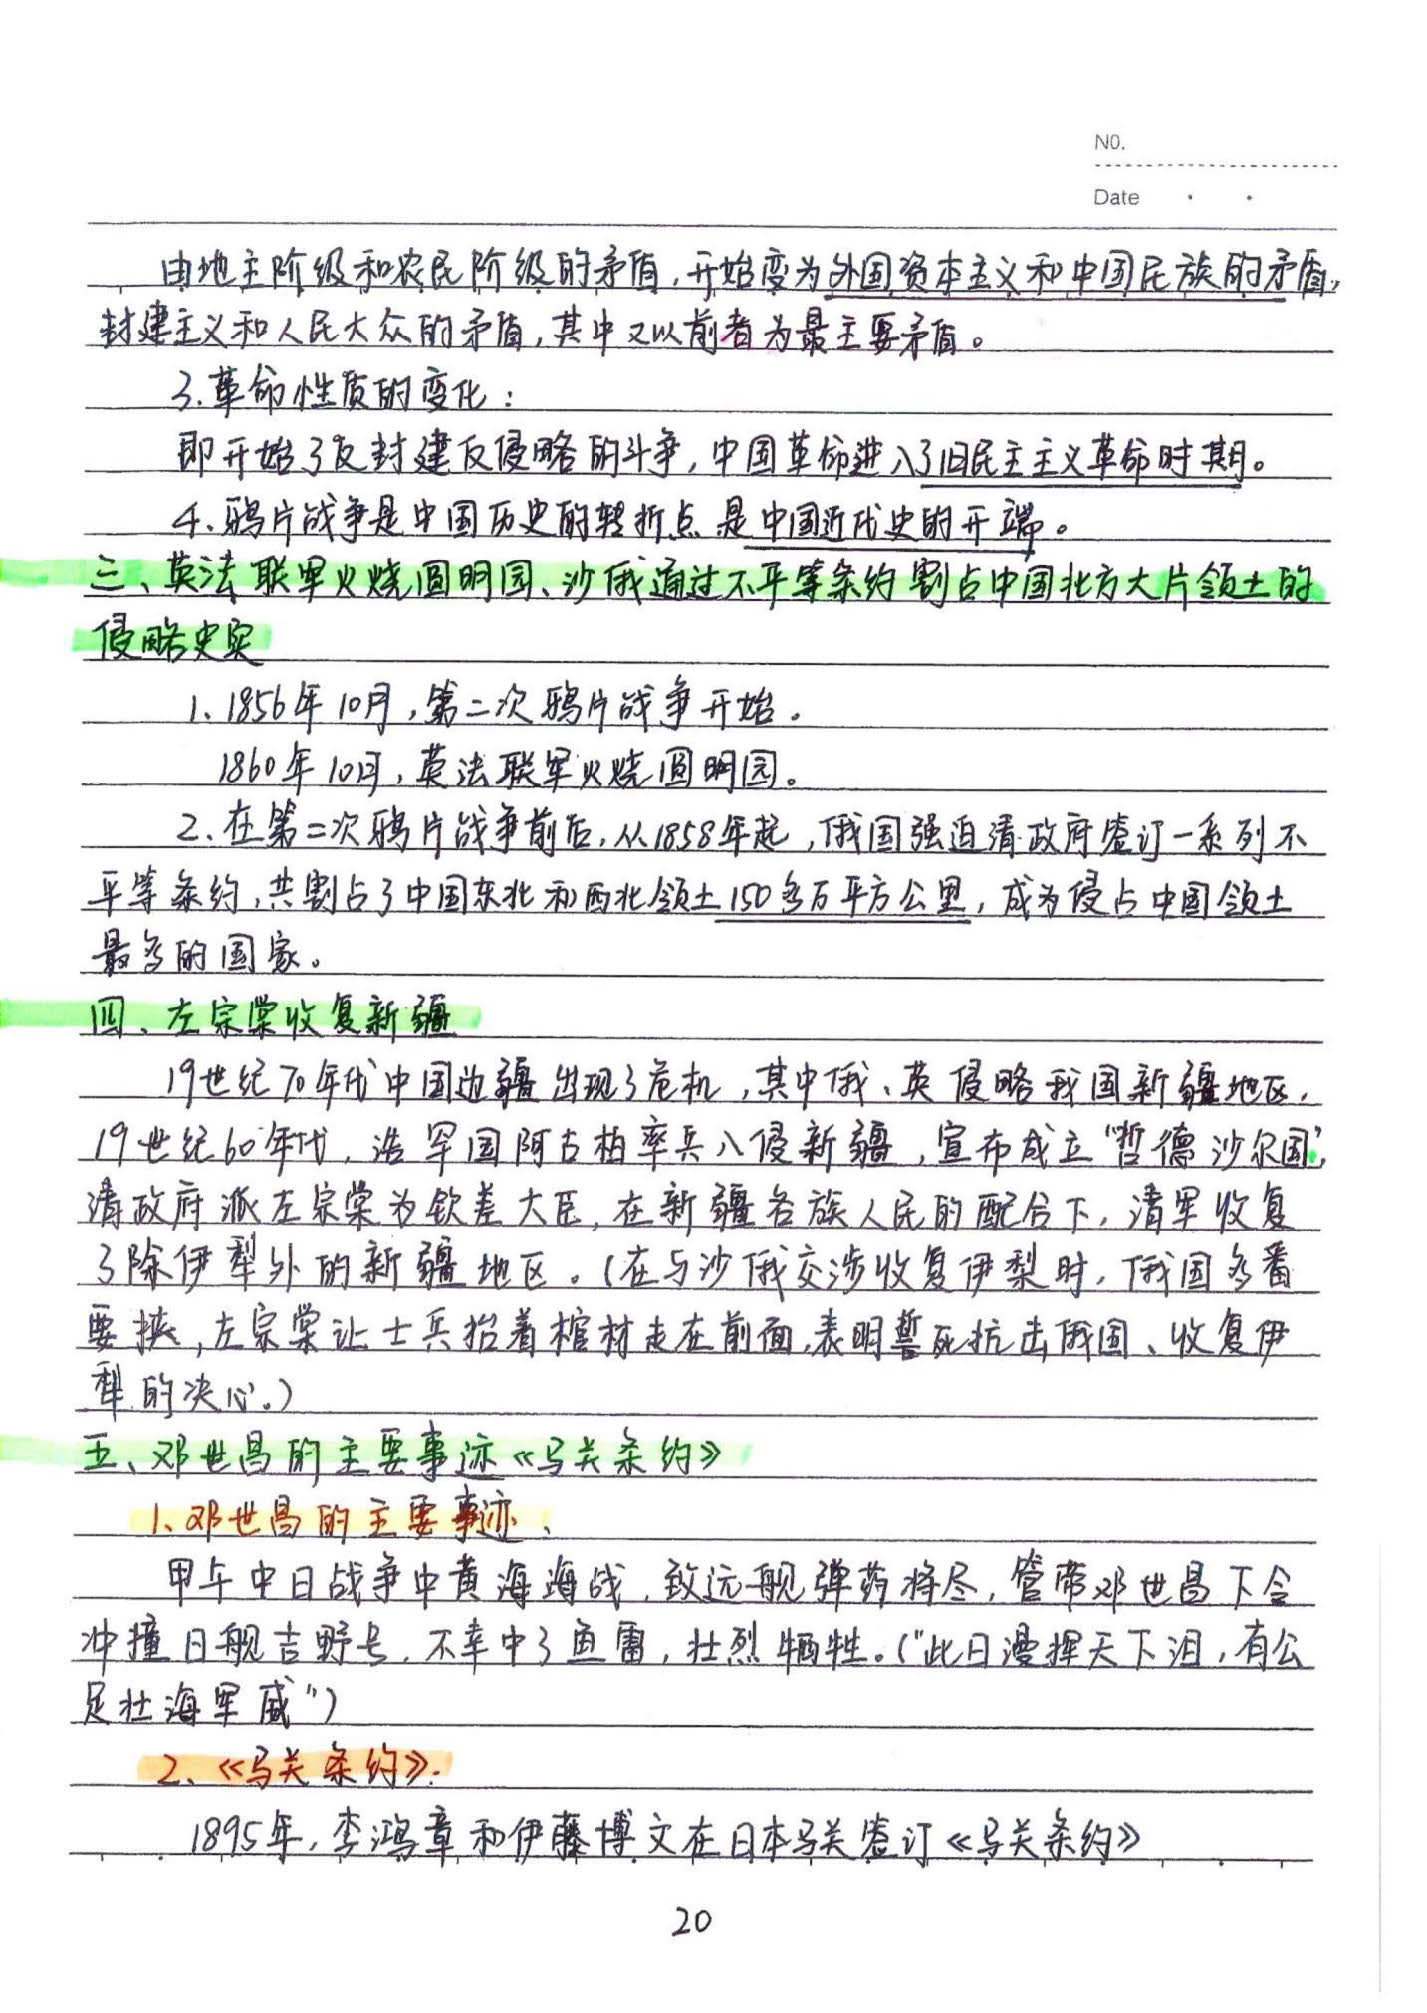 NO.
Date
由地主阶级和农民阶级的矛盾,开始变为外国资本主义和中国民族的矛盾,
封建主义和人民大众的矛盾,其中又以前者为最主要矛盾。
3.革命性质的变化:
即开始了反封建反侵略的斗争,中国革命进入了旧民主主义革命时期。
4、鸦片战争是中国历史的转折点是中国近代史的开端。
三、英法联军火烧圆明园、沙俄通过不平等条约割占中国北方大片领土的
侵略史实
1、1856年10月,第二次鸦片战争开始。
1860年10月,英法联军火烧圆明园。
2、在第二次鸦片战争前后,从1858年起,俄国强迫清政府签订一系列不
平等条约,共割占了中国东北和西北领土150多万平方公里,成为侵占中国领土
最多的国家。
四、左宗棠收复新疆
19世纪70年代中国边疆出现了危机,其中俄、英侵略我国新疆地区,
19世纪60年代,浩罕国阿古柏率兵入侵新疆,宣布成立“哲德沙尔国”,
清政府派左宗棠为钦差大臣,在新疆各族人民的配合下,清军收复
了除伊犁外的新疆地区。(在与沙俄交涉收复伊犁时,俄国多番
要挟,左宗棠让士兵抬着棺材走在前面,表明誓死抗击俄国、收复伊
犁的决心。)
五、邓世昌的主要事迹《马关条约》
1、邓世昌的主要事迹、
甲午中日战争中黄海海战,致远舰弹药将尽,管带邓世昌下令
冲撞日舰吉野号,不幸中了鱼雷,壮烈牺牲。(“此日漫挥天下泪,有公
足壮海军威”)
2、《马关条约》:
1895年,李鸿章和伊藤博文在日本马关签订《马关条约》
20